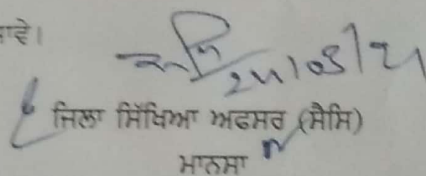 ਜਾਵੇ।
24/03/21
ਜਿਲਾ ਸਿੱਖਿਆ ਅਫਸਰ (ਸੈਸਿ)
ਮਾਨਸਾ